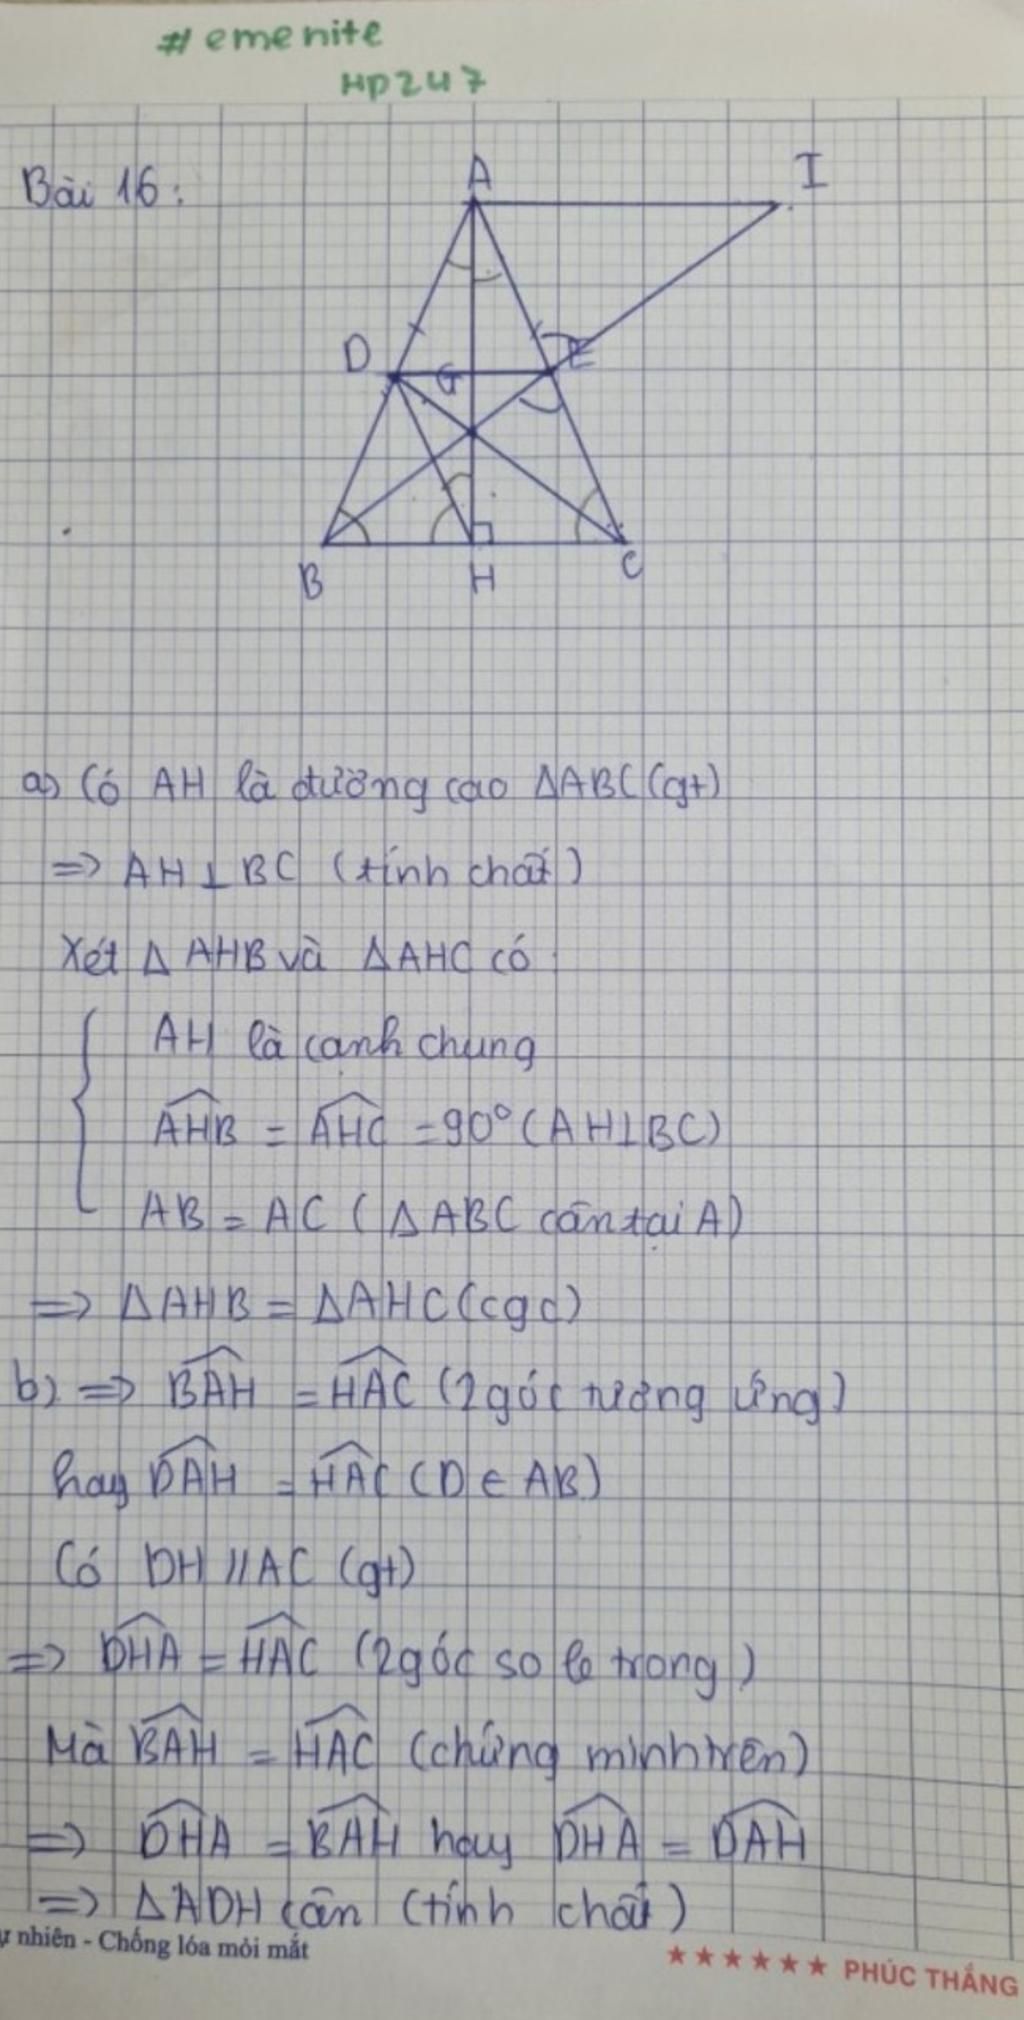 #emenite
HP247
Bài 16:
A
I
D
G
E
B
H
C
a) Có AH là đường cao ΔABC (gt)
=> AH ⊥ BC (tính chất)
Xét Δ AHB và ΔAHC có:
AH là cạnh chung
\widehat{AHB} = \widehat{AHC} = 90° (AH⊥BC)
AB = AC (ΔABC cân tại A)
=> ΔAHB = ΔAHC (cgc)
b) => \widehat{BAH} = \widehat{HAC} (2 góc tương ứng)
hay \widehat{DAH} = \widehat{HAC} (D ∈ AB)
Có DH // AC (gt)
=> \widehat{DHA} = \widehat{HAC} (2 góc so le trong)
Mà \widehat{BAH} = \widehat{HAC} (chứng minh trên)
=> \widehat{DHA} = \widehat{BAH} hay \widehat{DHA} = \widehat{DAH}
=> ΔADH cân (tính chất)
nhiên - Chống lóa mỏi mắt
★★★★★★ PHÚC THẮNG